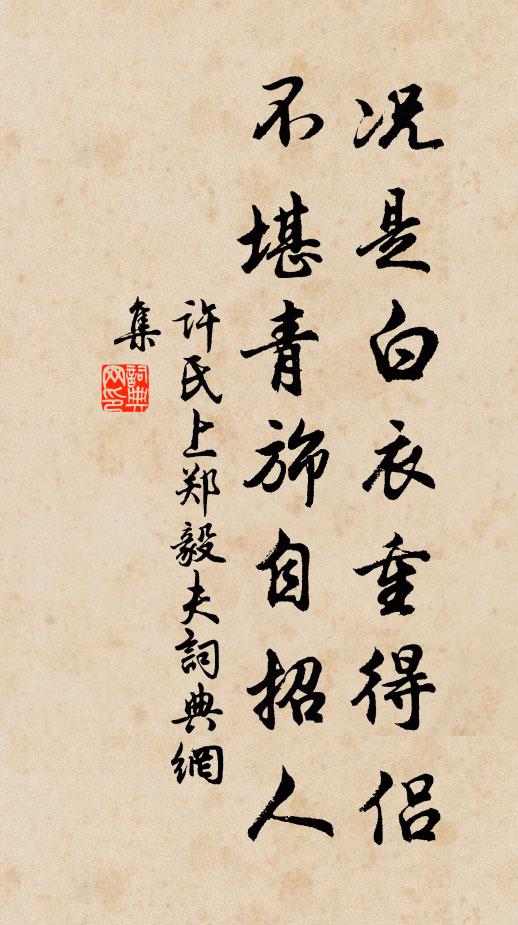 况是白衣重得侣
不堪青旆自招人
许氏上郑毅夫詞典網
集
詞典
网印